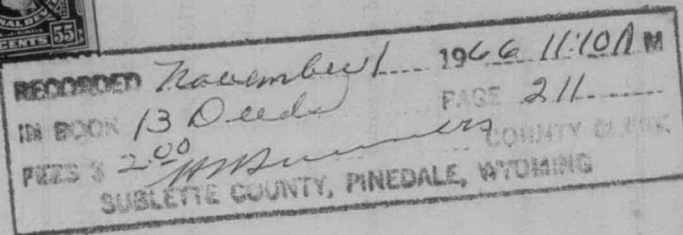 CENTS 55
RECORDED November 1 1966 11:10 A M
IN BOOK 13 Deeds PAGE 211
FEES $ 2.00 COUNTY CLERK
SUBLETTE COUNTY, PINEDALE, WYOMING